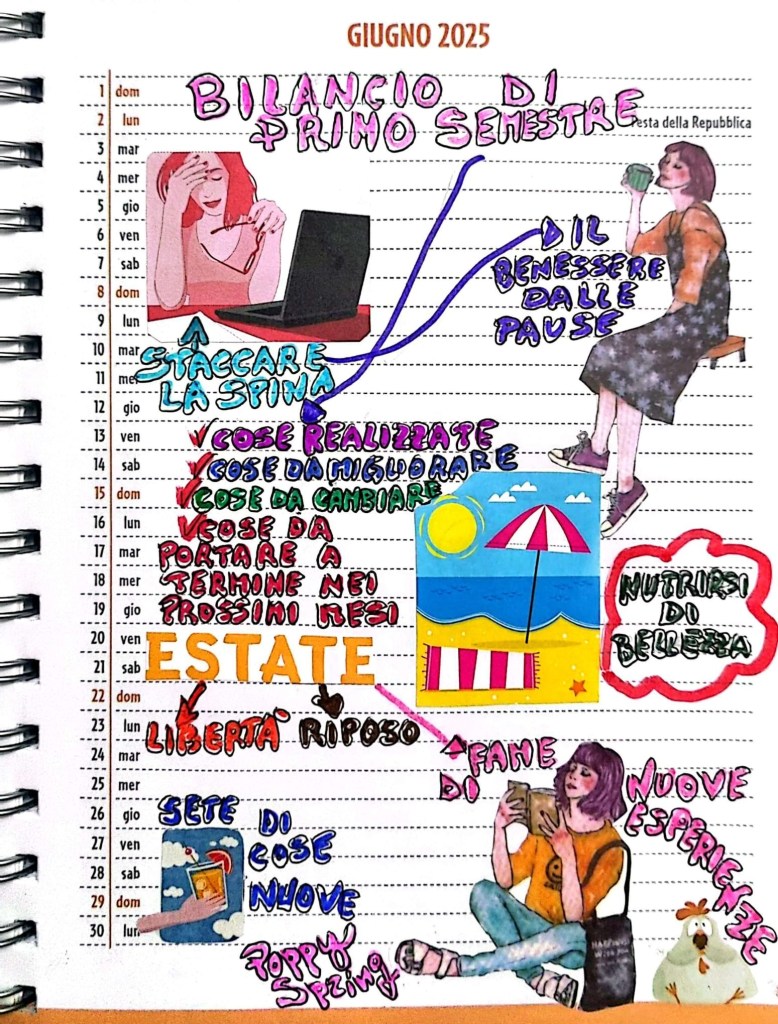 GIUGNO 2025
1 dom
2 lun
Festa della Repubblica
3 mar
4 mer
5 gio
6 ven
7 sab
8 dom
9 lun
10 mar
11 mer
12 gio
13 ven
14 sab
15 dom
16 lun
17 mar
18 mer
19 gio
20 ven
21 sab
22 dom
23 lun
24 mar
25 mer
26 gio
27 ven
28 sab
29 dom
30 lun
BILANCIO DI
PRIMO SEMESTRE
IL
BENESSERE
DALLE
PAUSE
STACCARE
LA SPINA
COSE REALIZZATE
COSE DA MIGLIORARE
COSE DA CAMBIARE
COSE DA
PORTARE A
TERMINE NEI
PROSSIMI MESI
NUTRIRSI
DI
BELLEZZA
ESTATE
LIBERTÀ RIPOSO
FAME
DI
NUOVE
ESPERIENZE
SETE DI
COSE
NUOVE
Poppy
Spring